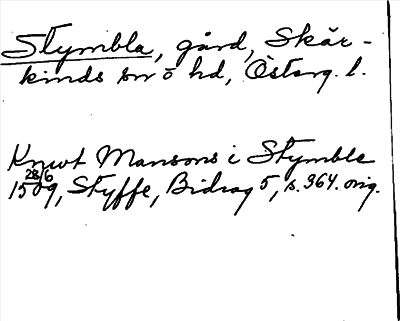 Stymbla, gård, Skär-
kinds sn o hd, Östorg. l.
Knwt Mansons i Stymble
28/6
1509, Styffe, Bidrag 5, s. 364. orig.